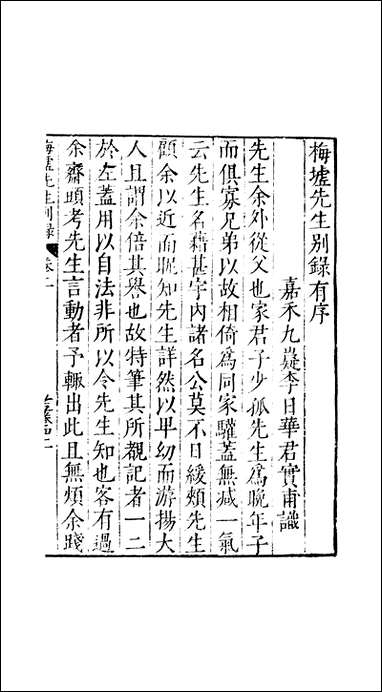 梅墟先生別錄有序
嘉禾九嶷李日華君實甫識
先生余外從父也家君子少孤先生為晚年子
而俱寡兄弟以故相倚為同家驩蓋無減一氣
云先生名藉甚宇內諸名公莫不日緩頰先生
顧余以近而昵知先生詳然以卑幼而游揚大
人且謂余倍其譽也故特筆其所覩記者一二
於左蓋用以自法非所以令先生知也客有過
余齋頭考先生言動者予輒出此且無煩余踐
梅墟先生別錄 卷上